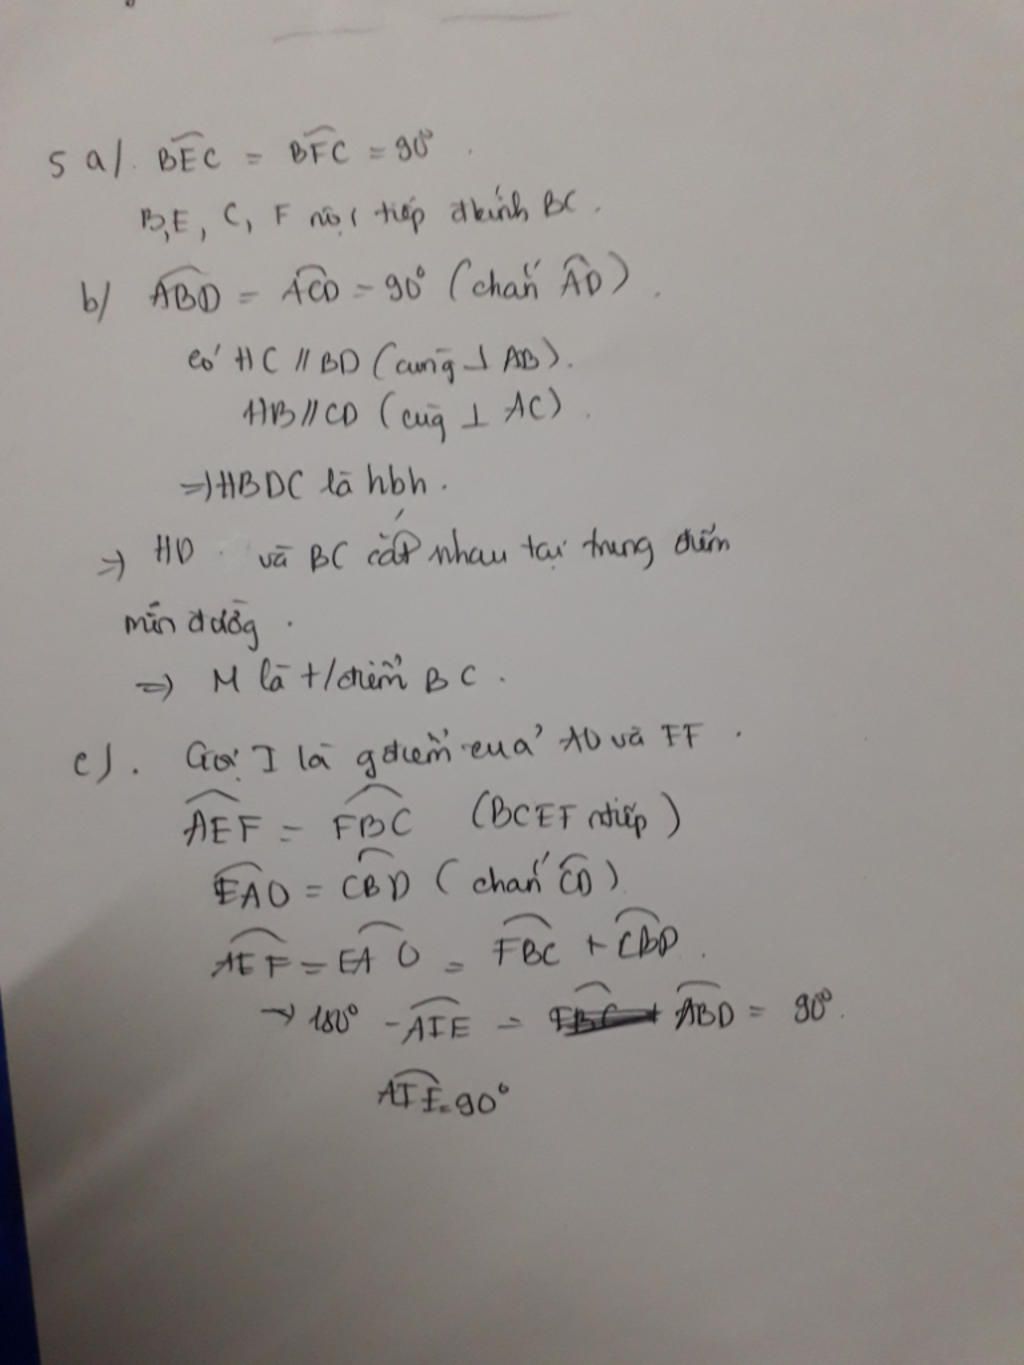 5 a/. BEC = BFC = 90°.
B,E, C, F nội tiếp đkính BC.
b/ ABD = ACD = 90° (chắn AD).
có HC // BD (cùng ⊥ AB).
HB // CD (cùg ⊥ AC).
=> HBDC là hbh.
=> HD và BC cắt nhau tại trung điểm
mỗi đườg.
=> M là t/điểm BC.
c). Gọi I là gđiểm của AO và FF.
AEF = FBC (BCEF ntiếp)
EAO = CBD (chắn CD)
AEF = EAO = FBC + CBD.
→ 180° - AIE = ABD = 90°.
AIE = 90°